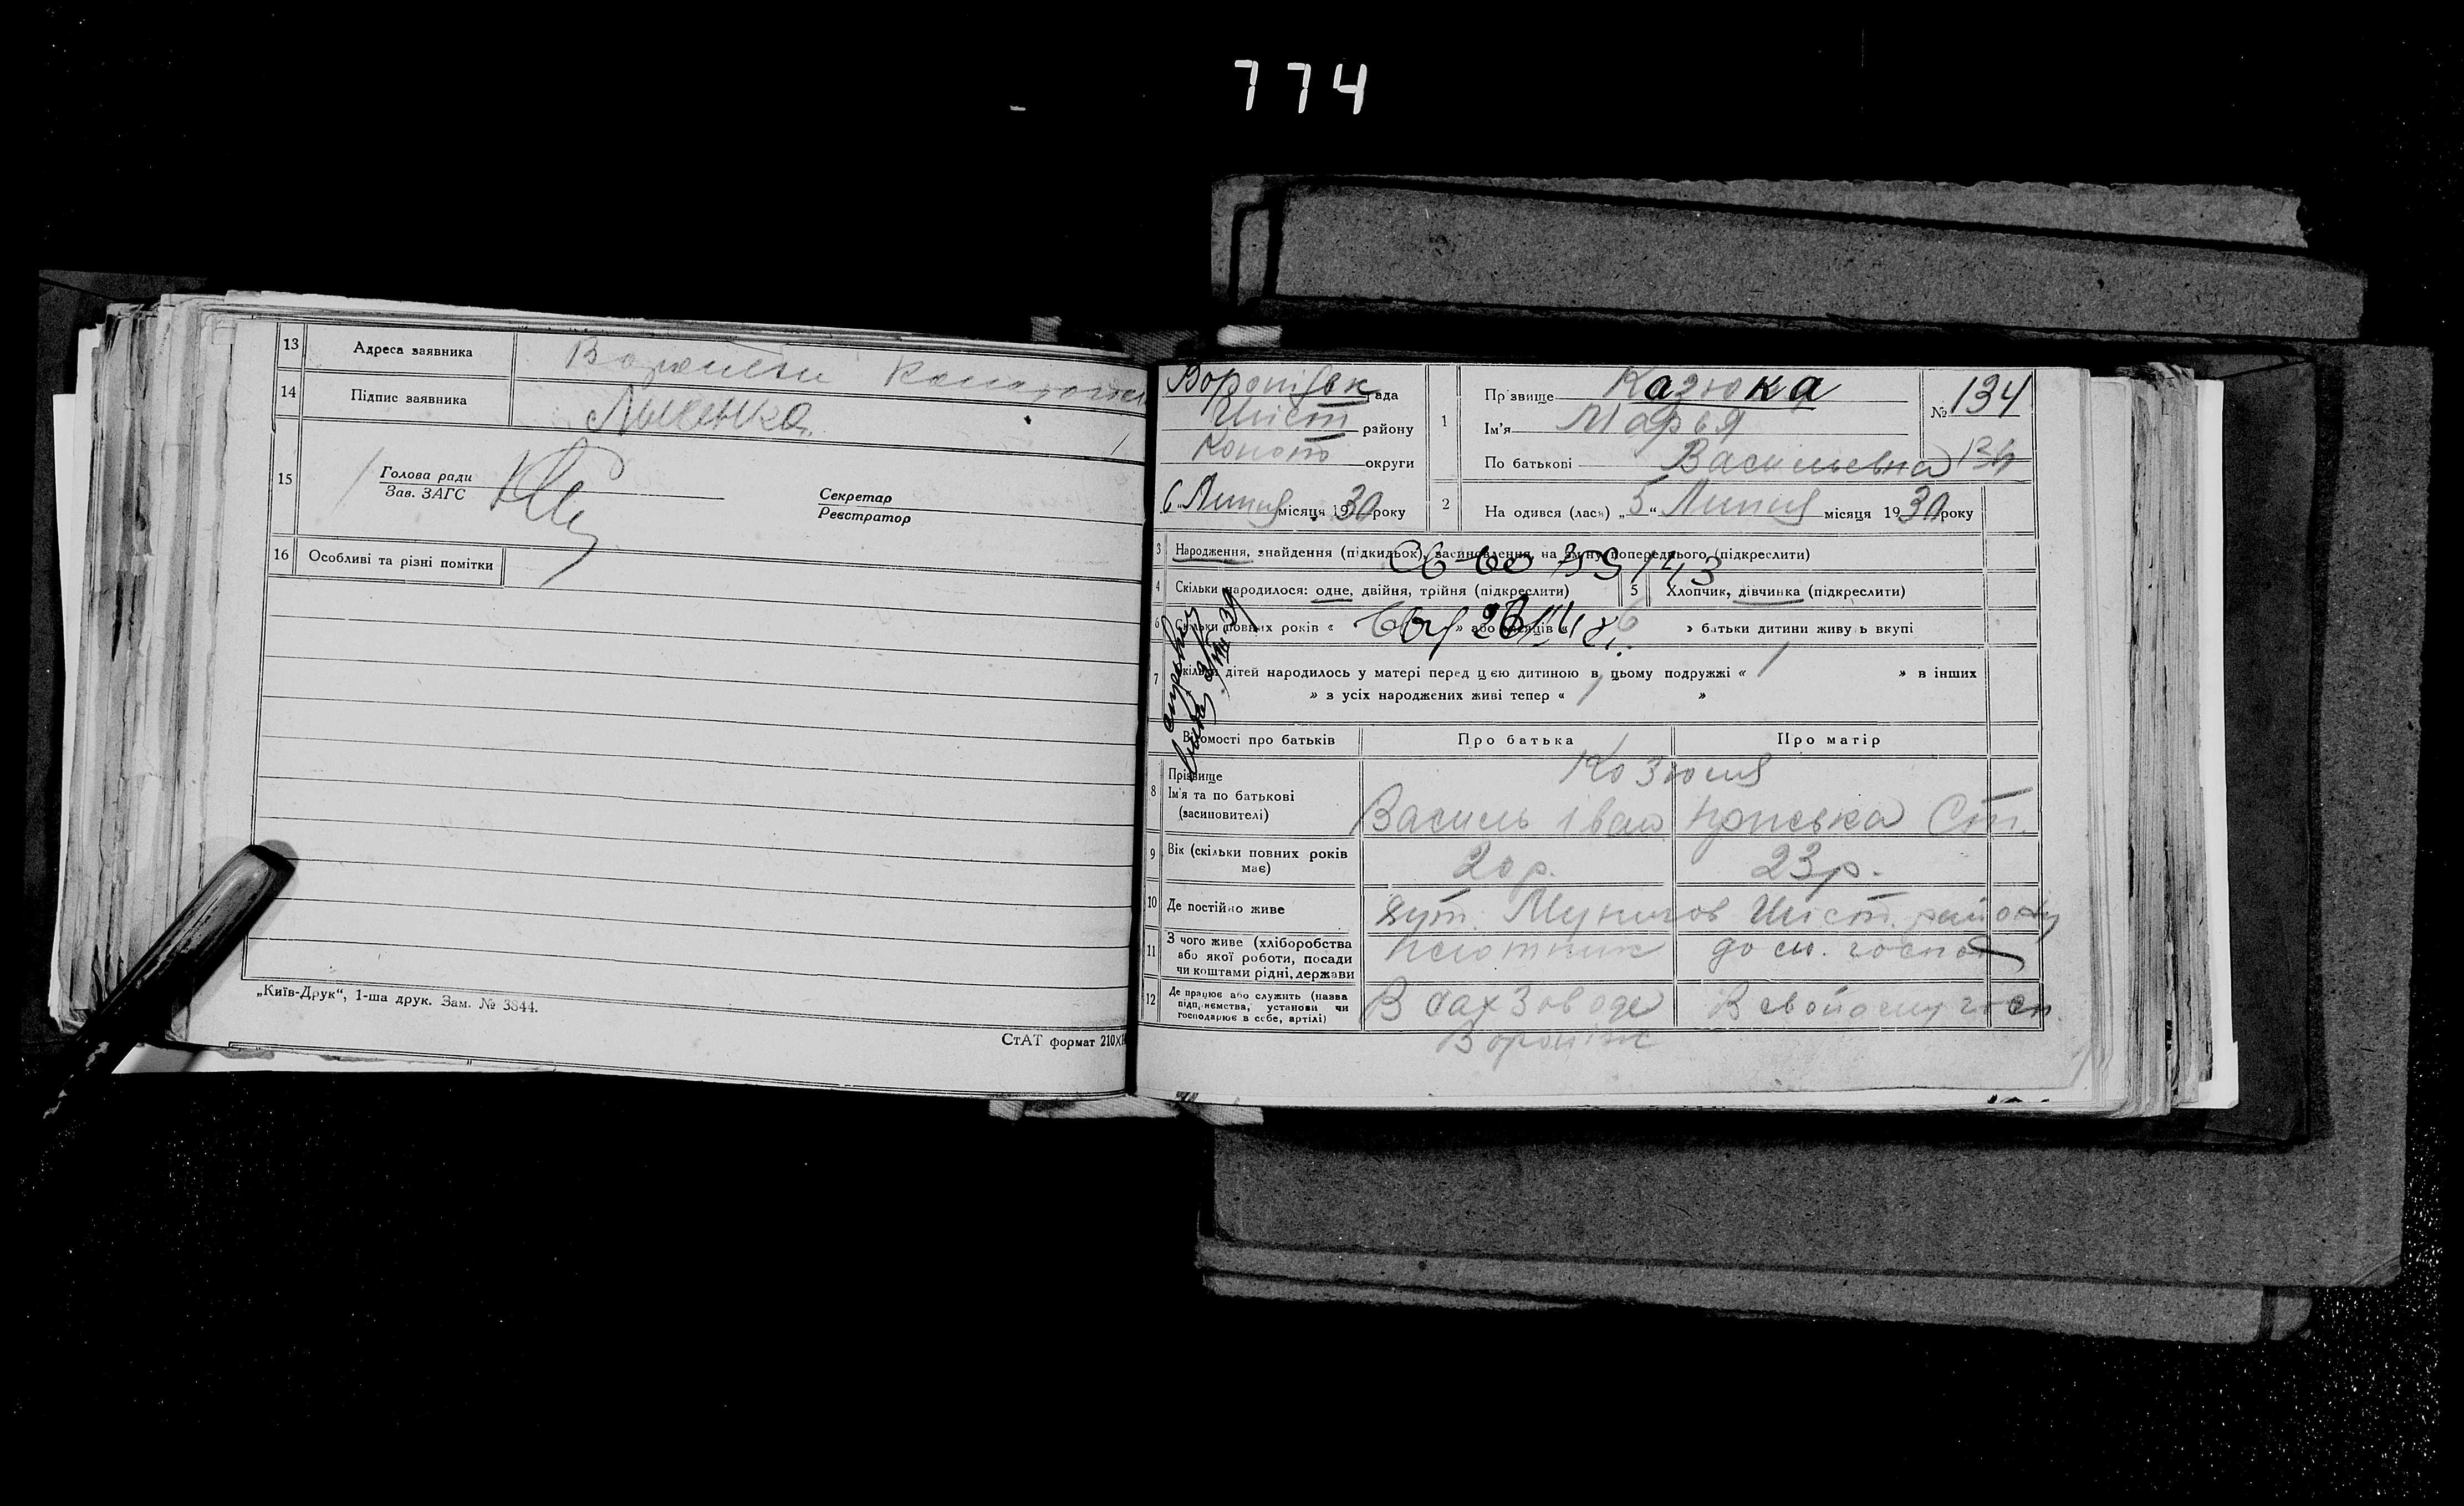 774
13 Адреса заявника
14 Підпис заявника Лысенко
15 Голова ради
Зав. ЗАГС
Секретар
Реєстратор
16 Особливі та різні помітки
„Київ-Друк“, 1-ша друк. Зам. № 3844.
СтАТ формат 210×
Воронізьк рада
Шіст району
Коноп округи
6 „Липня місяця 1930 року
1 Прізвище Казюка
Ім'я Марья
По батькові Васильевна
№ 134
134
2 На одився (лася) „5“ Липня місяця 1930 року
3 Народження, знайдення (підкидьок), засиновлення, на зміну попереднього (підкреслити)
4 Скільки народилося: одне, двійня, трійня (підкреслити)
5 Хлопчик, дівчинка (підкреслити)
6 Скільки повних років « » або місяців « 6 » батьки дитини живуть вкупі
7 Скільки дітей народилось у матері перед цею дитиною в цьому подружжі « 1 » в інших
» з усіх народжених живі тепер « 1 »
Відомості про батьків Про батька Про матір
8 Прізвище
Ім'я та по батькові
(засиновителі)
Василь Іван
Ст.
9 Вік (скільки повних років має) 20 р. 23 р.
10 Де постійно живе хут. Шіст. району
11 З чого живе (хліборобства
або якої роботи, посади
чи коштами рідні, держави
плотник
дом. господ
12 Де працює або служить (назва
підприємства, установи чи
господарює в себе, артілі)
В сахзаводе
Вороніж
В свойому госп.